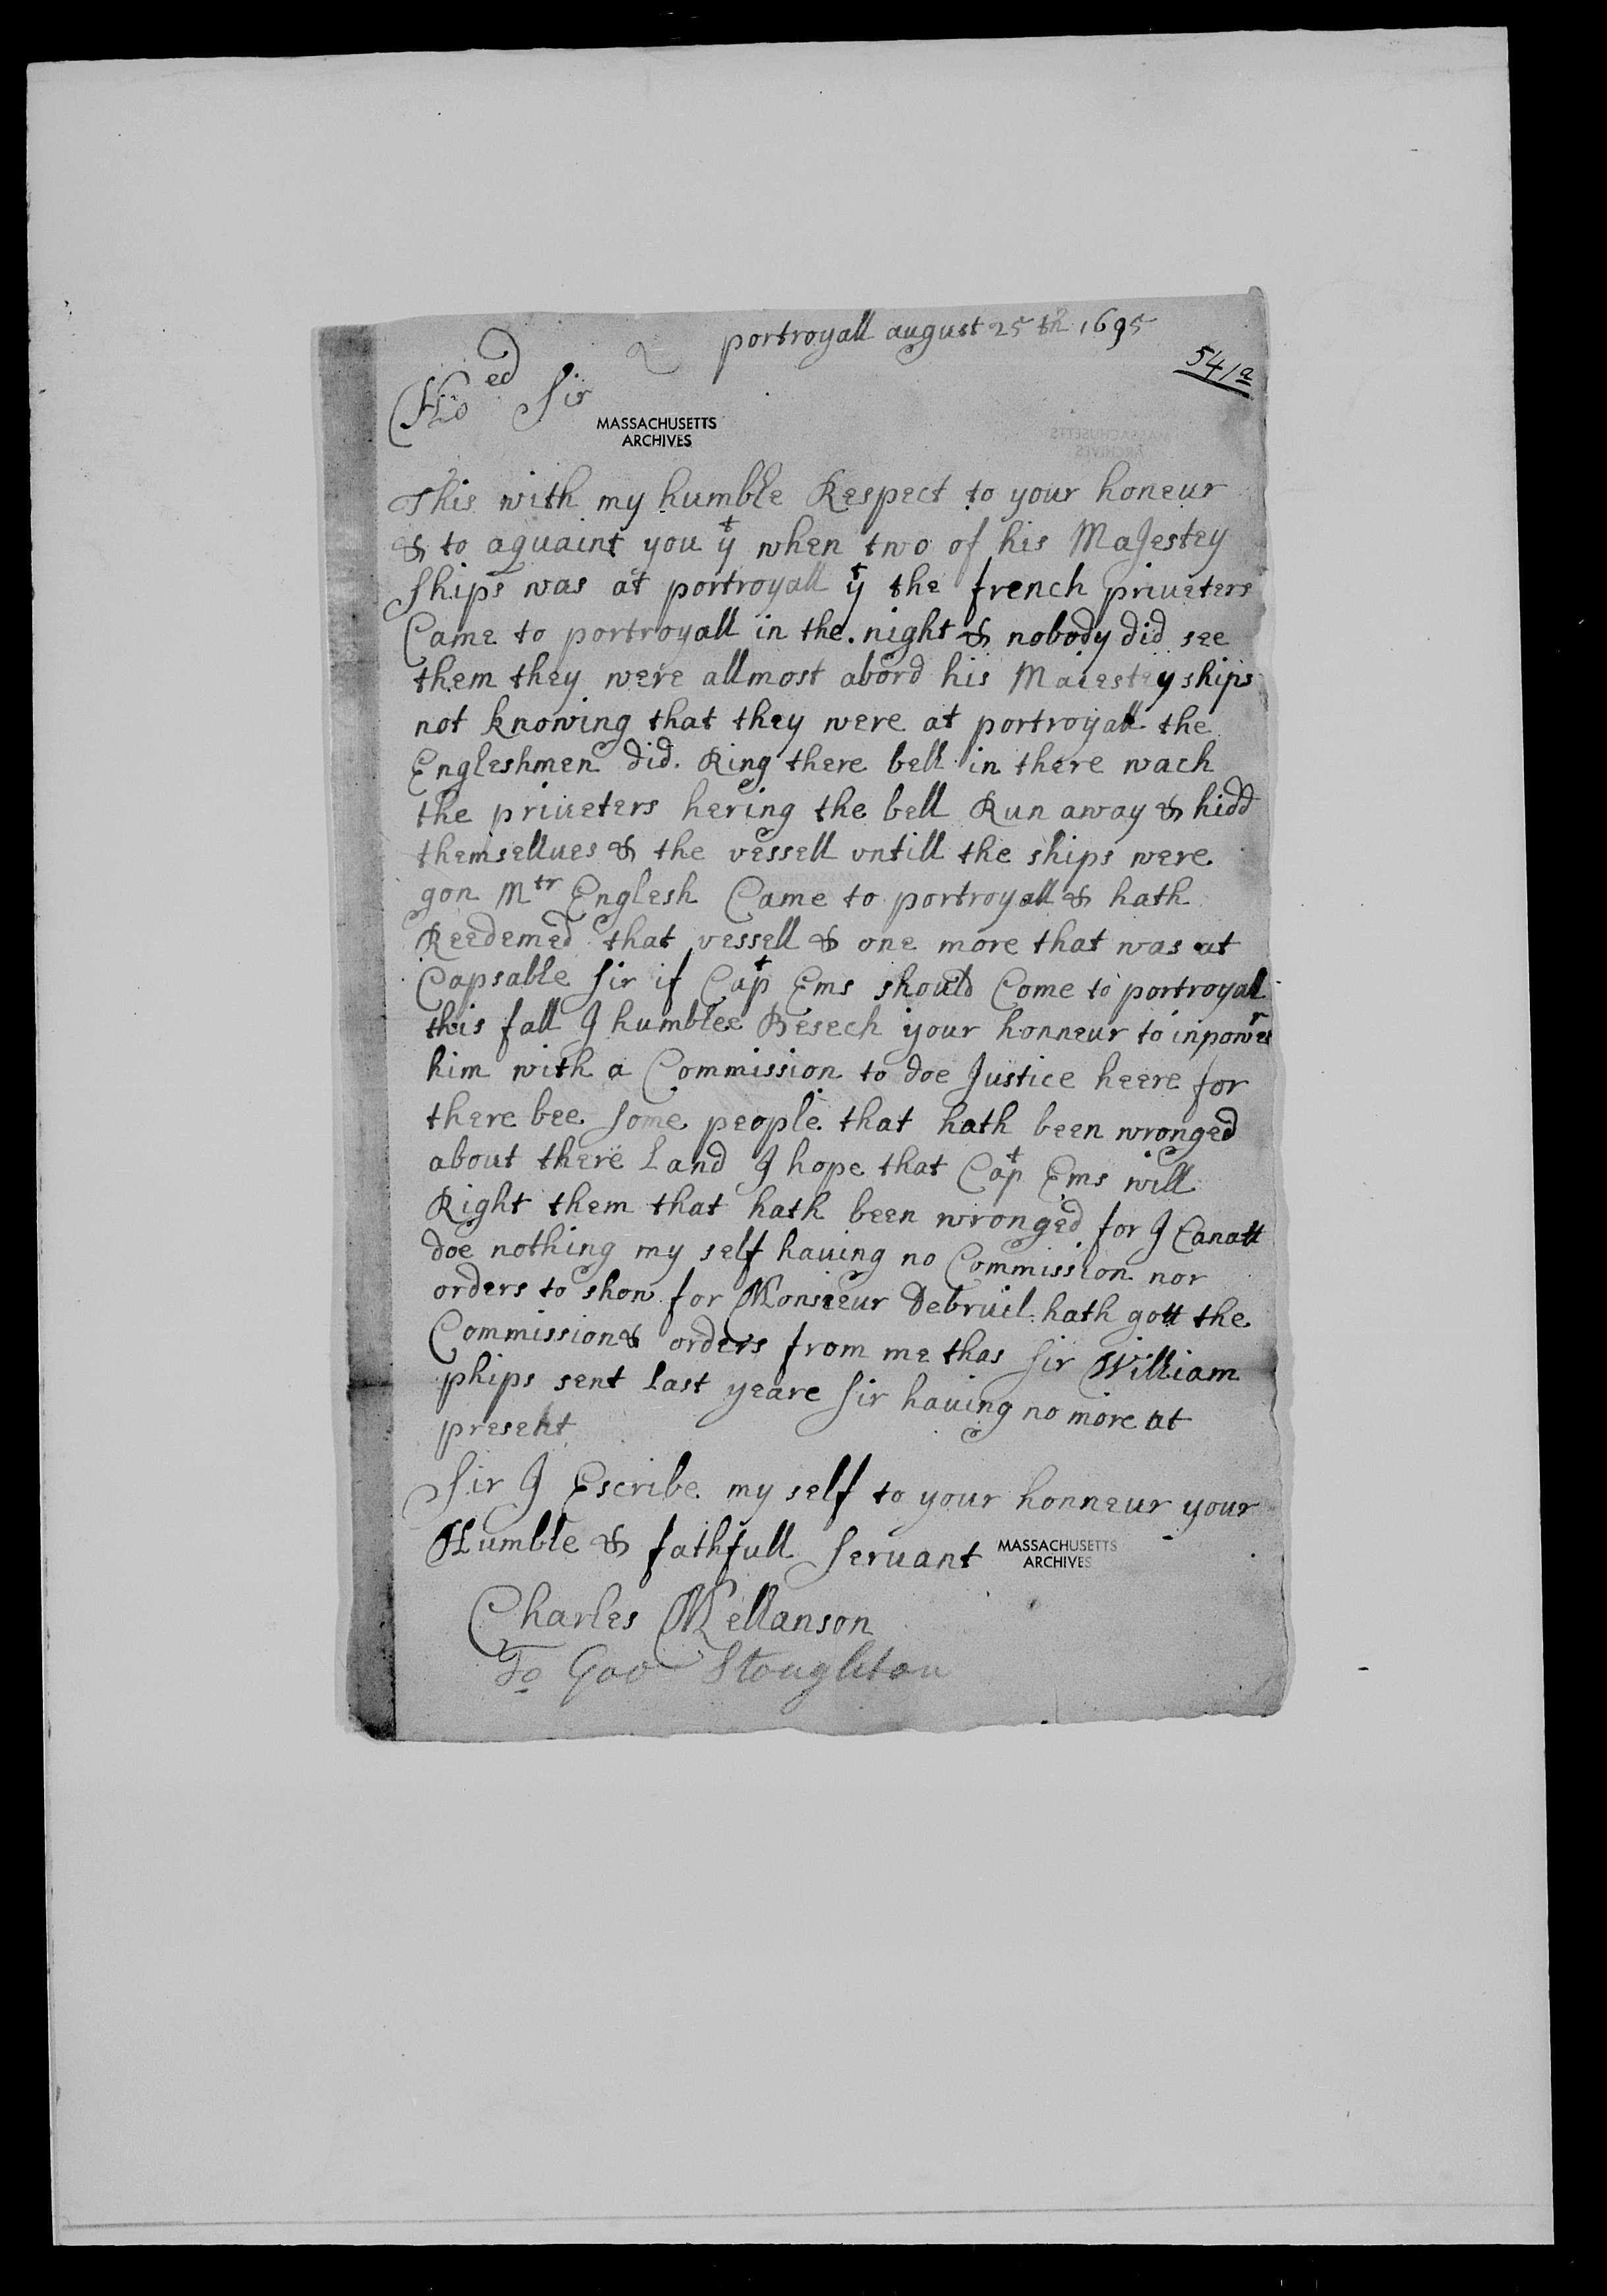 portroyall august 25 th 1695
541a
Hoed Sir
MASSACHUSETTS
ARCHIVES
This with my humble Respect to your honeur
& to aquaint you yt when two of his MaJestey
ships was at portroyall yt the french priueters
Came to portroyall in the night & nobody did see
them they were allmost abord his Maiestey ships
not knowing that they were at portroyall the
Engleshmen did Ring there bell in there wach
the priueters hering the bell Run away & hidd
themsellues & the vessell vntill the ships were
gon Mtr Englesh Came to portroyall & hath
Reedemed that vessell & one more that was at
Capsable Sir if Capt Ems should Come to portroyall
this fall I humblee Besech your honneur to inpower
him with a Commission to doe Justice heere for
there bee some people that hath been wronged
about there Land I hope that Capt Ems will
Right them that hath been wronged for I Canott
doe nothing my self hauing no Commission nor
orders to show for Monsieur Debruil hath gott the
Commission & orders from me thas Sir William
phips sent Last yeare Sir hauing no more at
present
Sir I Escribe my self to your honneur your
Humble & fathfull Seruant
MASSACHUSETTS
ARCHIVES
Charles Mellanson
To Gov Stoughton